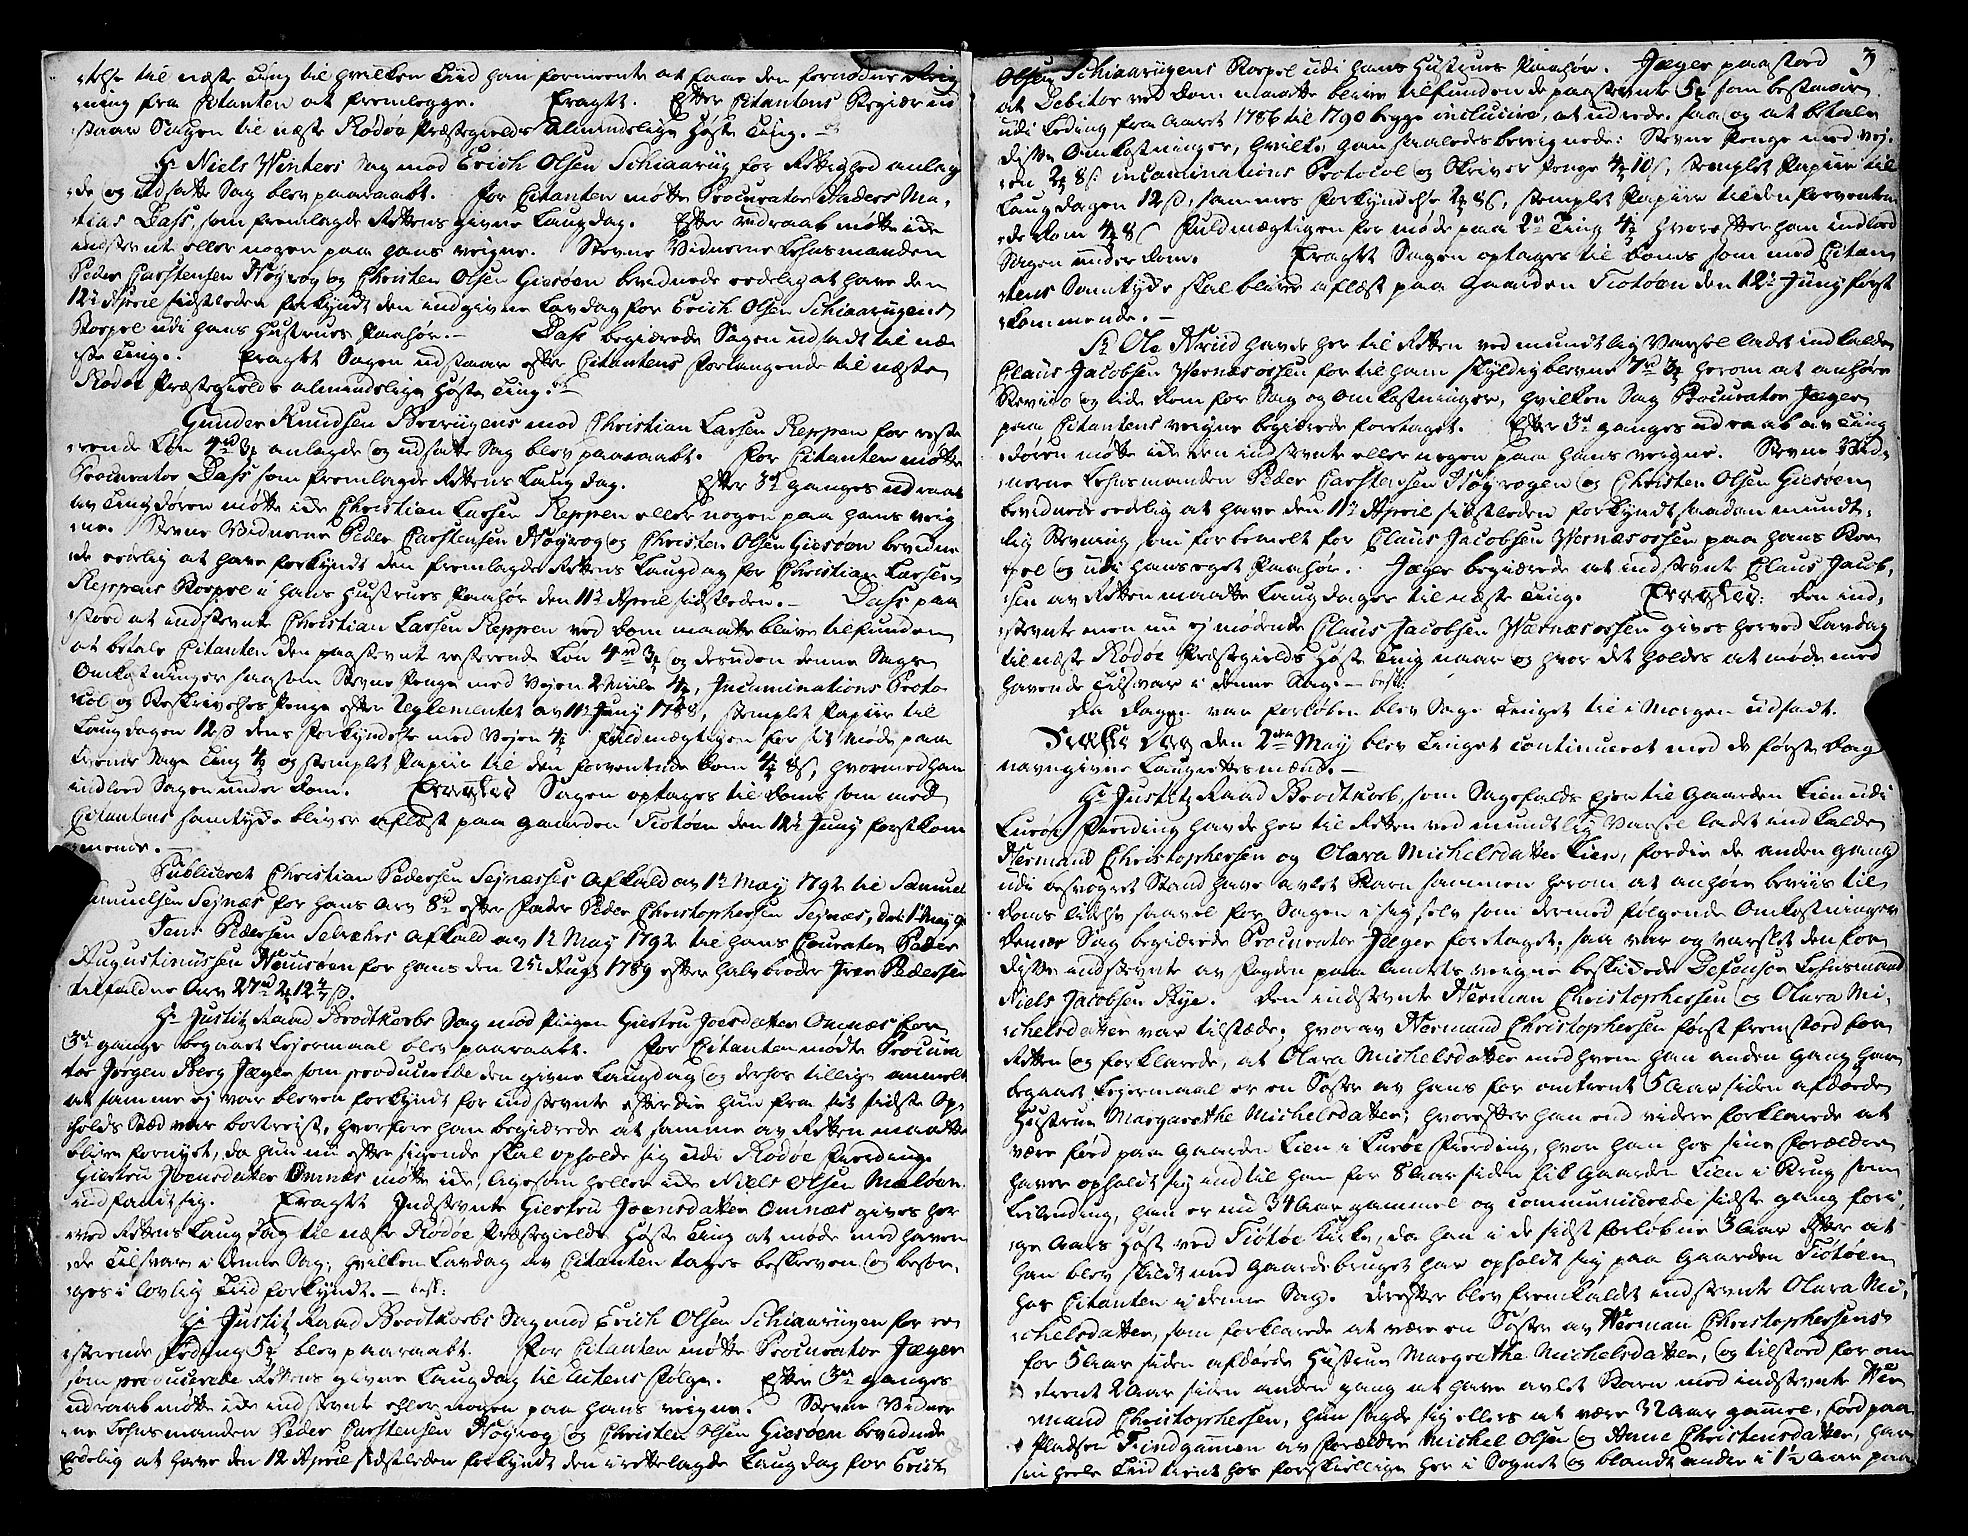 -else til næste Ting til hvilken Tiid han formeente at faae den fornødne Skrig
-ning fra Citanten at fremlegge. Eragtt. Efter Citantens Begiæring ud
staar Sagen til næste Rødøe Præstegields Almindelige Høste Ting.
Hr Niels Winters Sag mod Erich Olsen Schiaarúg for Rettighed anlag
-de og udsatte Sag blev paaraabt. For Citanten mötte Procurator Anders Ma-
tias Dass, som fremlagde Rettens givne Laugdag. Efter Udraab mötte icke
indstevnte eller nogen paa hans veigne. Stevne Vidnerne Lehnsmanden
Peder Carstensen Høyvog og Christen Olsen Giesöen bevidnede eedelig at have den
12te April sidstleden forkyndt den indgivne Lavdag for Erich Olsen Schiaarúgens
Boepæl udi hans Hustrues Paahør.- Dass begiærede Sagen udsadt til næ-
ste Ting. Eragtt Sagen udstaar efter Citantens Forlangende til næste
Rødøe Præstegields almindelige Høste Ting.-
Gunder Knudsen mod Christian Larsen Reppen for reste
-rende Løn 4rd 3 anlagde og udsatte Sag blev paaraabt. For Citanten mötte
Procurator Dass som fremlagde Rettens Laugdag. Efter 3de ganges udraab
av Tingdøren mötte icke Christian Larsen Reppen eller nogen paa hans veig
-ne. Stevne Vidnerne Peder Carstensen Høyvog og Christen Olsen Giesöen bevidne
-de eedelig at have forkyndt den fremlagde Rettens Laugdag for Christian Larsen
Reppens Boepæl i hans Hustrues Paahør den 11te April sidstleden.- Dass paa
stod at indstevnte Christian Larsen Reppen ved Dom maatte blive tilfunden
at betale Citanten den paastevnte resterende Løn 4rd 3 og desuden denne Sags
Omkostninger saasom Stevne Penge med Veien 2 Miile 4, Incaminations Proto
-col og Beskrivelses Penge efter Reglementet av 11te Juny 1788, stemplet Papiir til
Laugdagen 12s dens Forkyndelse med Veien 4 Fuldmægtigen for sit Møde paa
trende Sage Ting 4 og stemplet Papiir til den forventende Dom 4 8s, hvormed han
indlod Sagen under Dom. Eragted Sagen optages til Doms som med
Citantens samtyke bliver aflæst paa Gaarden Tiotøen den 12te Juny førstkom
-mende.-
Publiceret Christian Pedersen Sejnæsses Afkald av 1te May 1792 til Samuel
Samuelsen Sejnæs for hans Arv 8rd efter Fader Peder Christophersen Sejnæs, dat. 1te May 92
Jens Pedersen Selvæhes Afkald av 1te May 1792 til hans Curator Peder
Augustinussen for hans den 25te Augt 1789 efter halvbroder Iver Pedersen
tilfaldne Arv 27rd 2 12 s.
Hr Justitz Raad Brodtkorbs Sag mod Piigen Giertru Joensdatter Omnæs for
3de gange begaaet Leiermaal blev paaraabt. For Citanten mødte Procura
tor Jörgen Berg Jæger som producerede den givne Laugdag og derhos tillige anmelte
at samme ej var bleven forkyndt for indstevnte efterdie hun fra sit sidste Op-
holds Sted var bortreist, hvorfore han begiærede at samme av Retten maatte
blive fornyet, da hun nu efter sigende skal opholde sig udi Rødøe Fierding.
Giertru Joensdatter Omnæs mötte icke, ligesom heller icke Niels Olsen Maløen
indfandt sig. Eragtt Indstevnte Giertru Joensdatter Omnæs gives her
-ved Rettens Laugdag til næste Rødøe Præstegields Høste Ting at møde med haven
-de Tilsvar i denne Sag, hvilken Lavdag av Citanten tages beskreven og besør-
-ges i lovlig Tiid forkyndt.- besk:
Hr Justitz Raad Brodtkorbs Sag mod Erich Olsen Schiaarúgen for re
-sterende Leding 5 blev paaraabt. For Citanten mötte Procurator Jæger
som producerede Rettens givne Laugdag til Actens følge. Efter 3de ganges
udraab mötte icke indstevnte eller nogen paa hans veigne. Stevne Vidner
-ne Lehnsmanden Peder Carstensen Høyvog og Christen Olsen Giesöen bevidnede
Eedelig at have den 12 April sidstleden forkyndt den irettelagde Laugdag for Erich
3
Olsen Schiaarúgens Boepæl udi hans Hustrues Paahør. Jæger paastod
at Debitor ved Dom maatte blive tilfunden de paastevnte 5 som bestaaer
udi Leding fra Aaret 1786 til 1790 begge inclusive, at udrede saa og at betale
disse Omkostninger, hvilke han saaledes beregnede: Stevne Penge med Vej-
-en 2 8s incaminations Protocol og Skriver Penge 4 10s, stemplet Papiir til
Laugdagen 12s, sammes Forkyndelse 2 8s, stemplet Papiir til den forventen
-de Dom 4 8s Fuldmægtigen for møde paa 2de Ting 4 hvorefter han indlod
Sagen under Dom. Eragtt Sagen optages til Doms som med Citan
-tens Samtyke skal blive aflæst paa Gaarden Tiotøen den 12te Juny først
-kommende.-
Sr Ole Krúd havde her til Retten ved mundtlig Varsel ladet indkalde
Claus Jacobsen Wærnæsossen for til ham skyldig blevne 7rd 3 herom at anhøre
Beviis og lide Dom for Sag og Omkostninger, hvilken Sag Procurator Jæger
paa Citantens veigne begiærede foretaget. Efter 3de ganges udraab av Ting
-døren mötte icke den indstevnte eller nogen paa hans veigne. Stevne Vid-
-nerne Lehnsmanden Peder Carstensen Høyvogen og Christen Olsen Giesöen
bevidnede eedelig at have den 11te April sidstleden forkyndt saadan mundt-
lig Stevning som forbemelt for Claus Jacobsen Wærnæsossen paa hans Boe
-pæl og udi hans eget Paahør. Jæger begiærede at indstevnte Claus Jacob-
-sen av Retten maatte Laugdages til næste Ting. Eragted: Den ind-
-stevnte men nu ej mødende Claus Jacobsen Wærnæsossen gives herved Lavdag
til næste Rødøe Præstegields Høste Ting naar og hvor det holdes at møde med
havende Tilsvar i denne Sag.- besk:
Da Dagen var forløben blev Sage Tinget til i Morgen udsadt.
den 2den May blev Tinget continueret med de første Dag
navngivne Laugrettesmænd.-
Hr Justitz Raad Brodtkorb, som Sagefalds Eier til Gaarden Lien udi
Lurøe Fierding havde her til Retten ved mundtlig Varsel ladet indkalde
Hermand Christophersen og Olava Michelsdatter Lien, fordie de anden gang
udi besvogret Stand have avlet Barn sammen herom at anhøre beviis til
Doms lidelse saavel for Sagen i sig selv som dermed følgende Omkostninger
denne Sag begiærede Procurator Jæger foretaget, saa var og varslet den for
disse indstevnte av Fogden paa Amtets veigne beskikkede Defensor Lehnsmand
Niels Jacobsen Rye. Den indstevnte Herman Christophersen og Olava Mi-
-chelsdatter var tilstæde, hvorav Hermand Christophersen først fremstod for
Retten og forklarede, at Olava Michelsdatter med hvem han anden gang har
begaaet Leiermaal er en Søster av hans for omtrent 5 Aar siden afdøde
Hustrue Margarethe Michelsdatter; hvorefter han end videre forklarede at
være fød paa Gaarden Lien i Lurøe Fierding, hvor han hos sine Forældre
haver opholdt sig indtil han for 8 Aar siden fik Gaarden Lien i Brug som
Leilending, han er nu 34 Aar gammel og communicerede sidste gang fori-
-ge Aars Høst ved Tiøtøe Kirke, da han i de sidst forløbne 3 Aar efter at
han blev skildt ved Gaardebruget har opholdt sig paa Gaarden Tiotøen
hos Citanten i denne Sag. Derefter blev fremkaldt indstevnte Olava Mi-
-chelsdatter, som forklarede at være en Søster av Herman Christophersens
for 5 Aar siden afdøde Hustrue Margrethe Michelsdatter, og tilstod for om
-trent 2 Aar siden anden gang at have avlet Barn med indstevnte Her
mand Christophersen, hun sagde sig ellers at være 32 Aar gammel, fød paa
Pladsen Findgammen av Forældre Michel Olsen og Anne Christensdatter, har
sin heele Tiid tient hos forskiellige her i Sognet og blandt andre i 1½ Aar paa